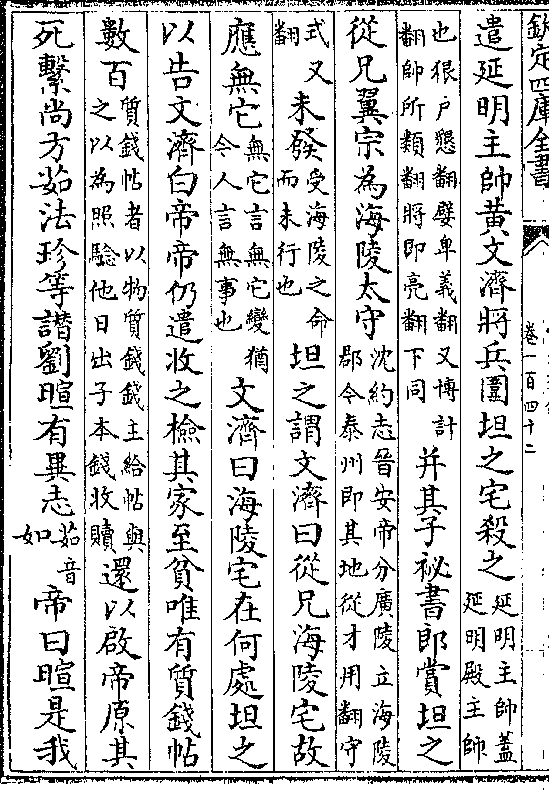 欽定四庫全書 卷一百四十二
遣延明主帥黄文濟將兵圍坦之宅殺之延明主帥蓋延明殿主帥
也很户懇翻嬖卑義翻又博計翻帥所類翻將即亮翻下同并其子祕書郎賞坦之
從兄翼宗為海陵太守沈約志晉安帝分廣陵立海陵郡今泰州即其地從才用翻守
式又翻未發受海陵之命而未行也坦之謂文濟曰從兄海陵宅故
應無它無它言無它變猶今人言無事也文濟曰海陵宅在何處坦之
以告文濟白帝帝仍遣收之檢其家至貧唯有質錢帖
數百質錢帖者以物質錢錢主給帖與之以為照驗他日出子本錢收贖還以啟帝原其
死繫尚方茹法珍等譖劉暄有異志茹音如帝曰暄是我